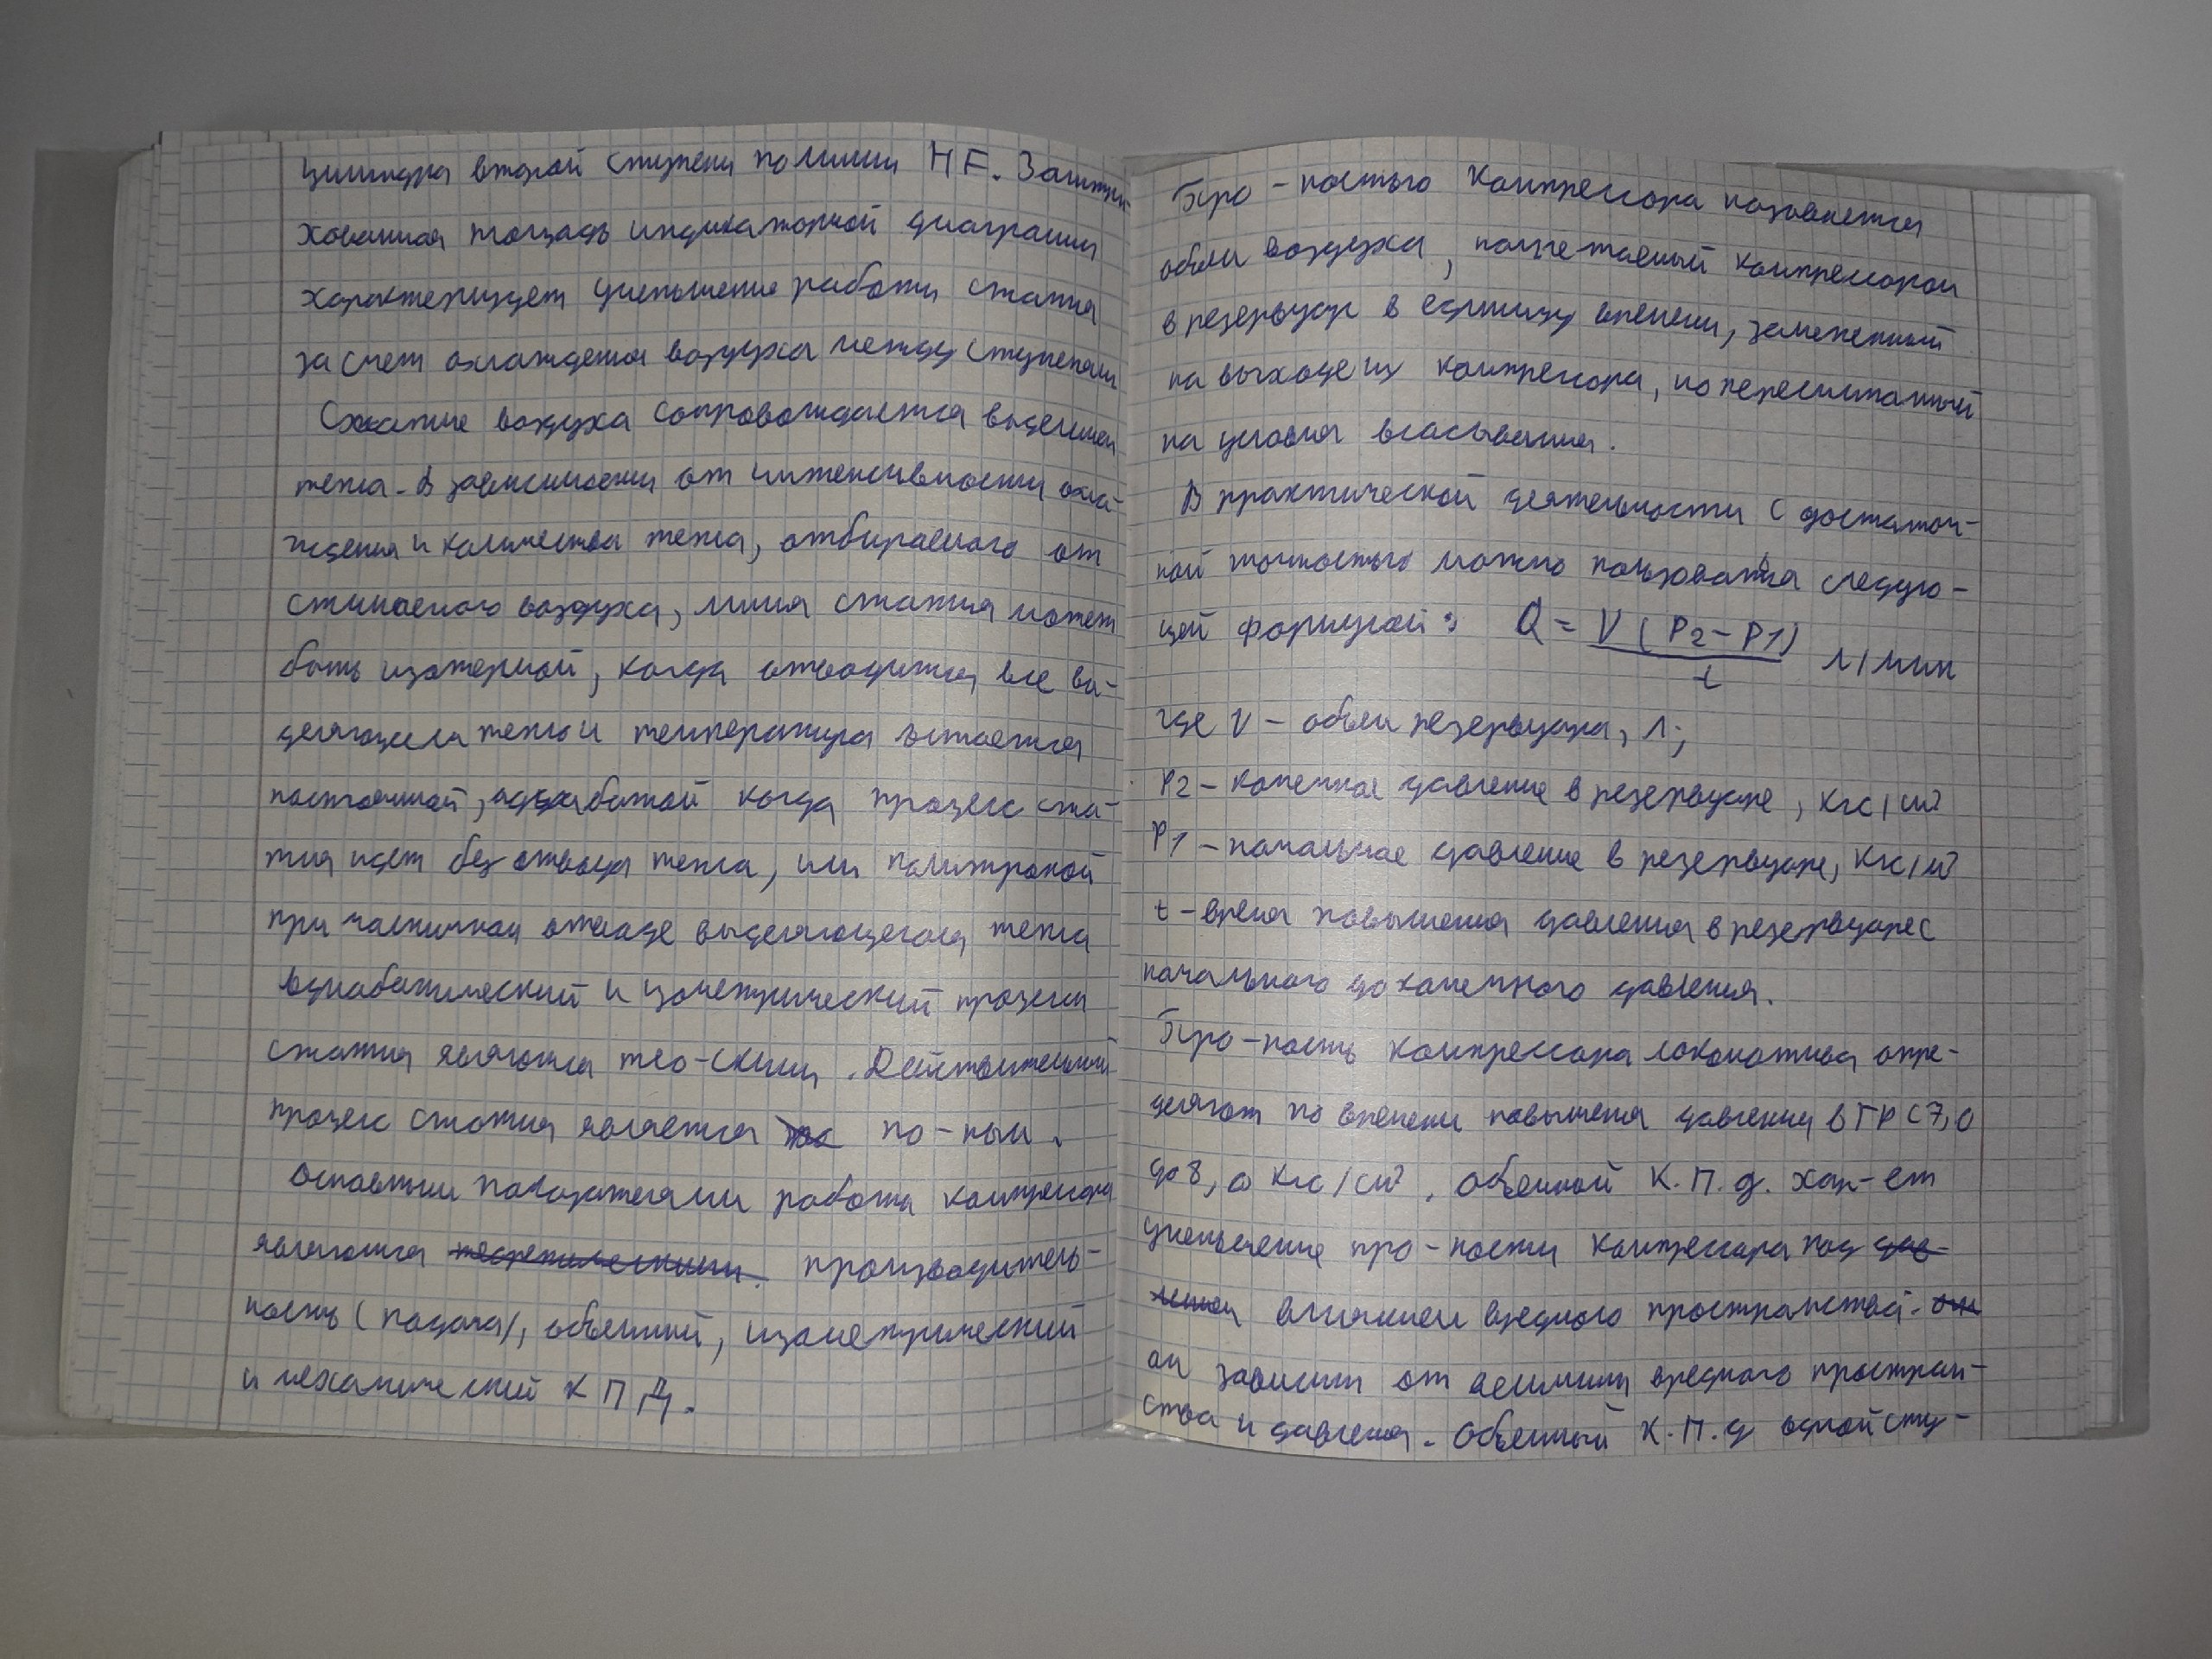 цилиндра второй ступени по линии HF. Заштри-
хованная площадь индикаторной диаграммы
характеризует уменьшение работы сжатия
за счет охлаждения воздуха между ступенями
Сжатие воздуха сопровождается выделением
тепла. В зависимости от интенсивности охла-
ждения и количества тепла, отбираемого от
сжимаемого воздуха, линия сжатия может
быть изотермой, когда отводится все вы-
деляющееся тепло и температура остается
постоянной, адиабатой когда процесс сжа-
тия идет без отвода тепла, или политропой
при частичном отводе выделяющегося тепла
Адиабатический и изометрический процессы
сжатия являются тео-скими. Действительный
процесс сжатия является по-ным.
Основными показателями работы компрессора
являются теоретическими производитель-
ность (подача), объемный, изометрический
и механический КПД.
Про-ностью компрессора называется
объем воздуха, нагнетаемый компрессором
в резервуар в единицу времени, замеренный
на выходе из компрессора, но пересчитанный
на условия всасывания.
В практической деятельности с достаточ-
ной точностью можно пользоваться следую-
щей формулой: Q = V (P2 - P1) / t л/мин
где V - объем резервуара, л;
P2 - конечное давление в резервуаре, кгс/см²
P1 - начальное давление в резервуаре, кгс/см²
t - время повышения давления в резервуаре с
начального до конечного давления.
Про-ность компрессора локомотива опре-
деляют по времени повышения давления в ГР с 7,0
до 8,0 кгс/см². Объемной К.П.д. хар-ет
уменьшение про-ности компрессора под дав-
лением влиянием вредного пространства. он
он зависит от величины вредного простран-
ства и давления. Объемный К.П.д одной сту-